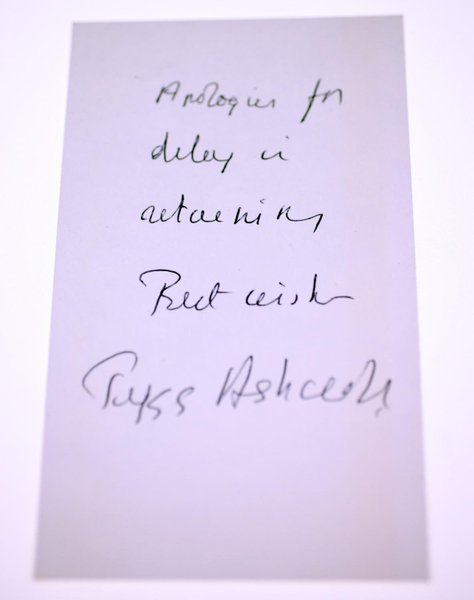 Apologies for
delay in
returning
Best wishes
Peggy Ashcroft